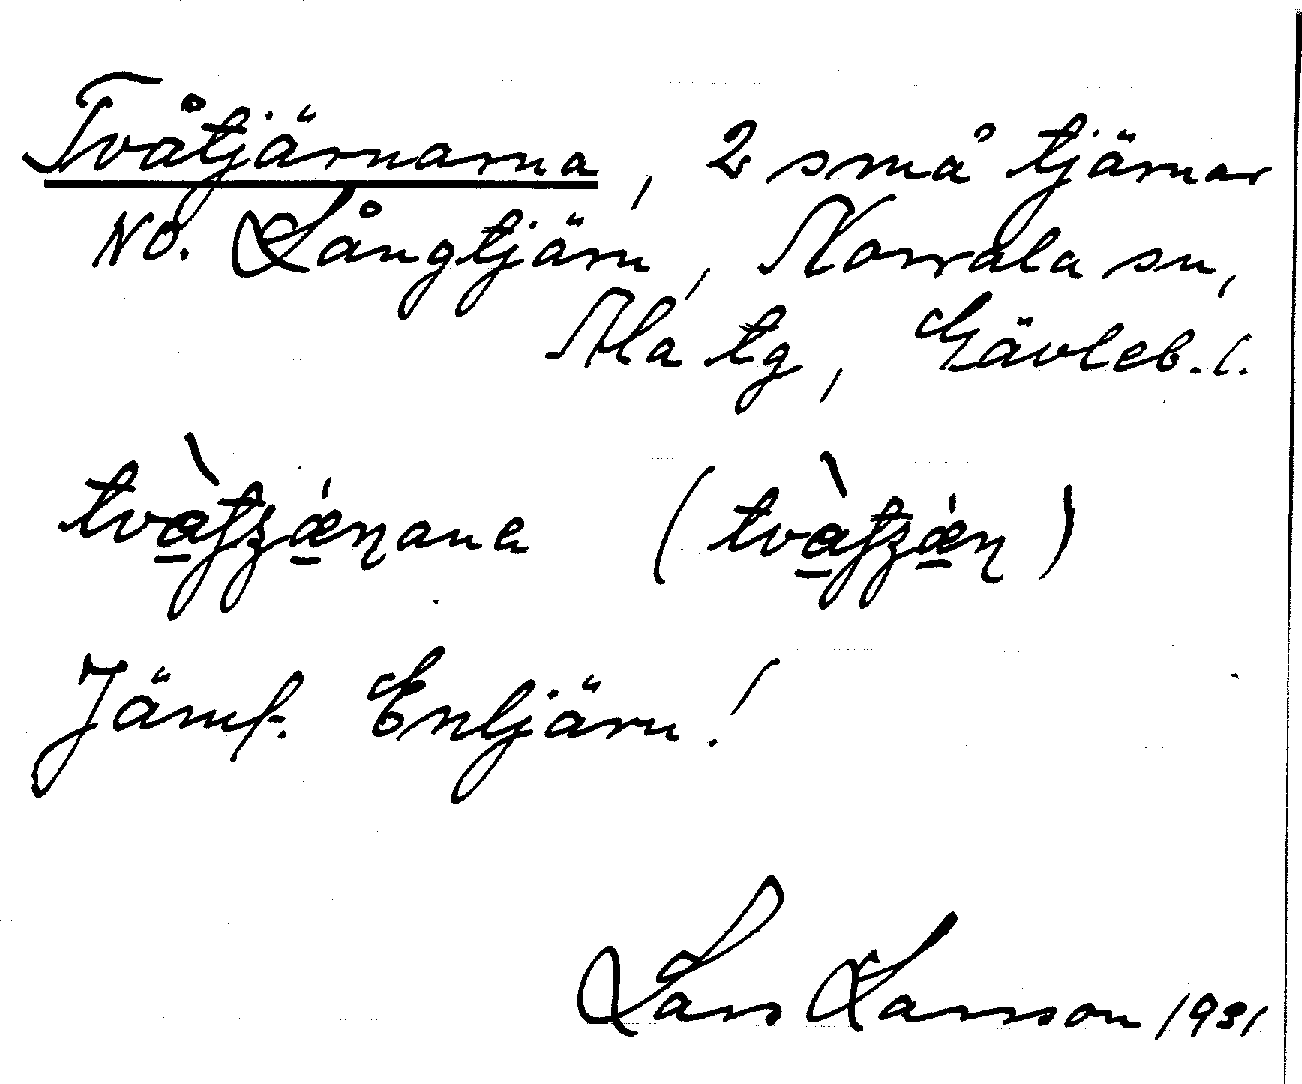 Tvåtjärnarna, 2 små tjärnar
NO. Långtjärn, Norrala sn,
Ala tg, Gävleb. l.
Jämf. Entjärn!
Lars Larsson 1931